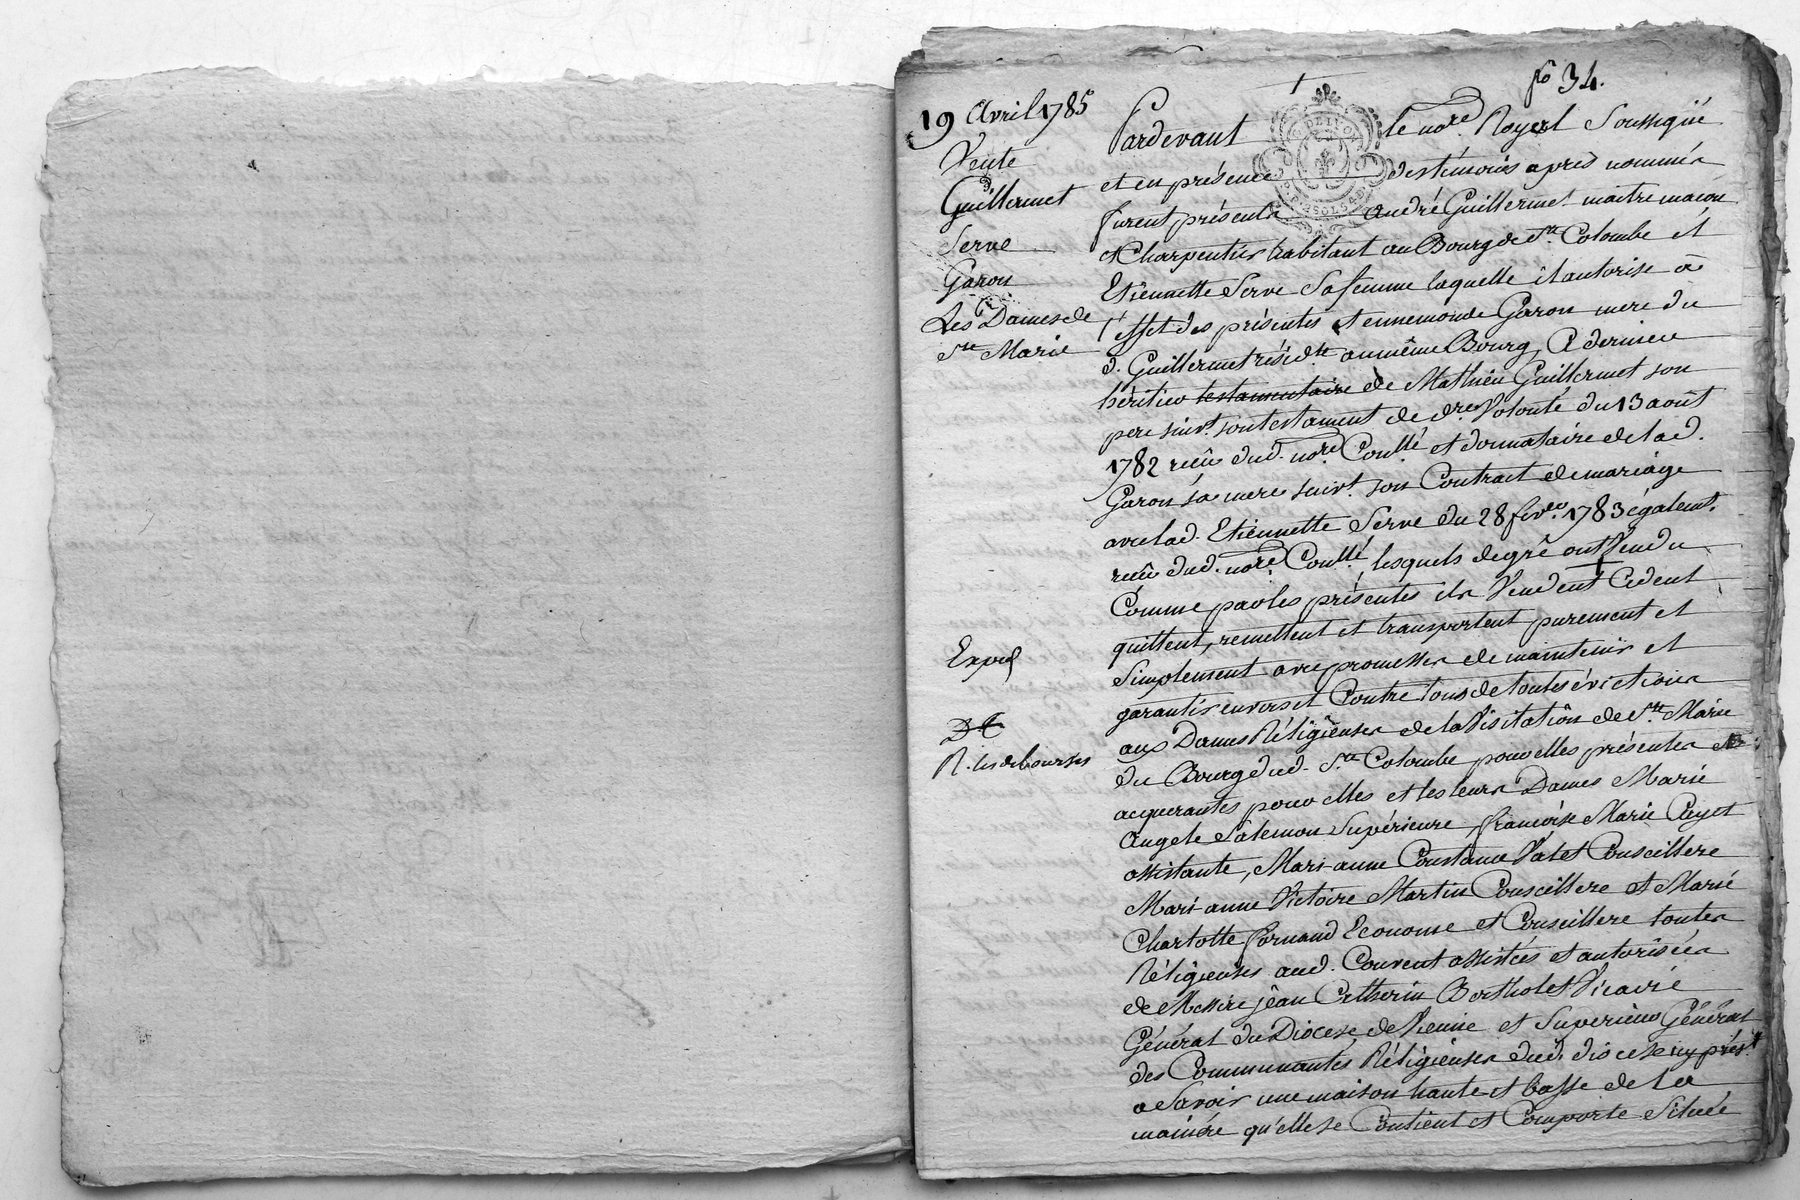 fo 34.
19 Avril 1785
Vente
Guillermet
Serve
Garon
Les Dames de
Ste Marie
Expéd
R. les debourses
Pardevant le nore. Royal Soussigné
et en présence des témoins après nommés
furent présents andré Guillermet maitre macon
et Charpentier habitant au Bourg de Ste. Colombe et
Etiennette Serve Sa femme laquelle il autorise à
l'effet des présentes et ennemonde Garon mere du
d. Guillermet résidte au même Bourg, Ce dernier
héritier testamentaire de Mathieu Guillermet son
pere suivt. son testament de dre Volonté du 13 août
1782 recû dud. nore Coullé et donnataire de lad.
Garon sa mere suivt. son Contract de mariage
avec lad. Etiennette Serve du 28 fevrer. 1783 égalemt.
recû dud. nore Coullé, lesquels de gré ont Vendu
Comme par les présentes ils Vendent Cedent
quittent, remettent et transportent purement et
Simplement avec promesses de maintenir et
garantir envers et Contre tous de toutes évictions
aux Dames Réligieuses de la Visitation de Ste Marie
du Bourg dud. Ste Colombe pour elles présentes et
acquerantes pour elles et les leurs Dames Marie
Angele Salemon Supérieure, françoise Marie Payet
assistante, Marianne Constance Valet Conseillere
Marianne Victoire Martin Conseillere et Marie
Charlotte fornand Econome et Conseillere toutes
Réligieuses aud. Couvent assistées et autorisées
de Messire jean Catherin Bertholet Vicaire
Général du Diocese de Vienne et Superieur Général
des Communautés Réligieuses dud. diocese icy prést.
a Savoir une maison haute et basse de la
maniere qu'elle se Contient et Comporte Située